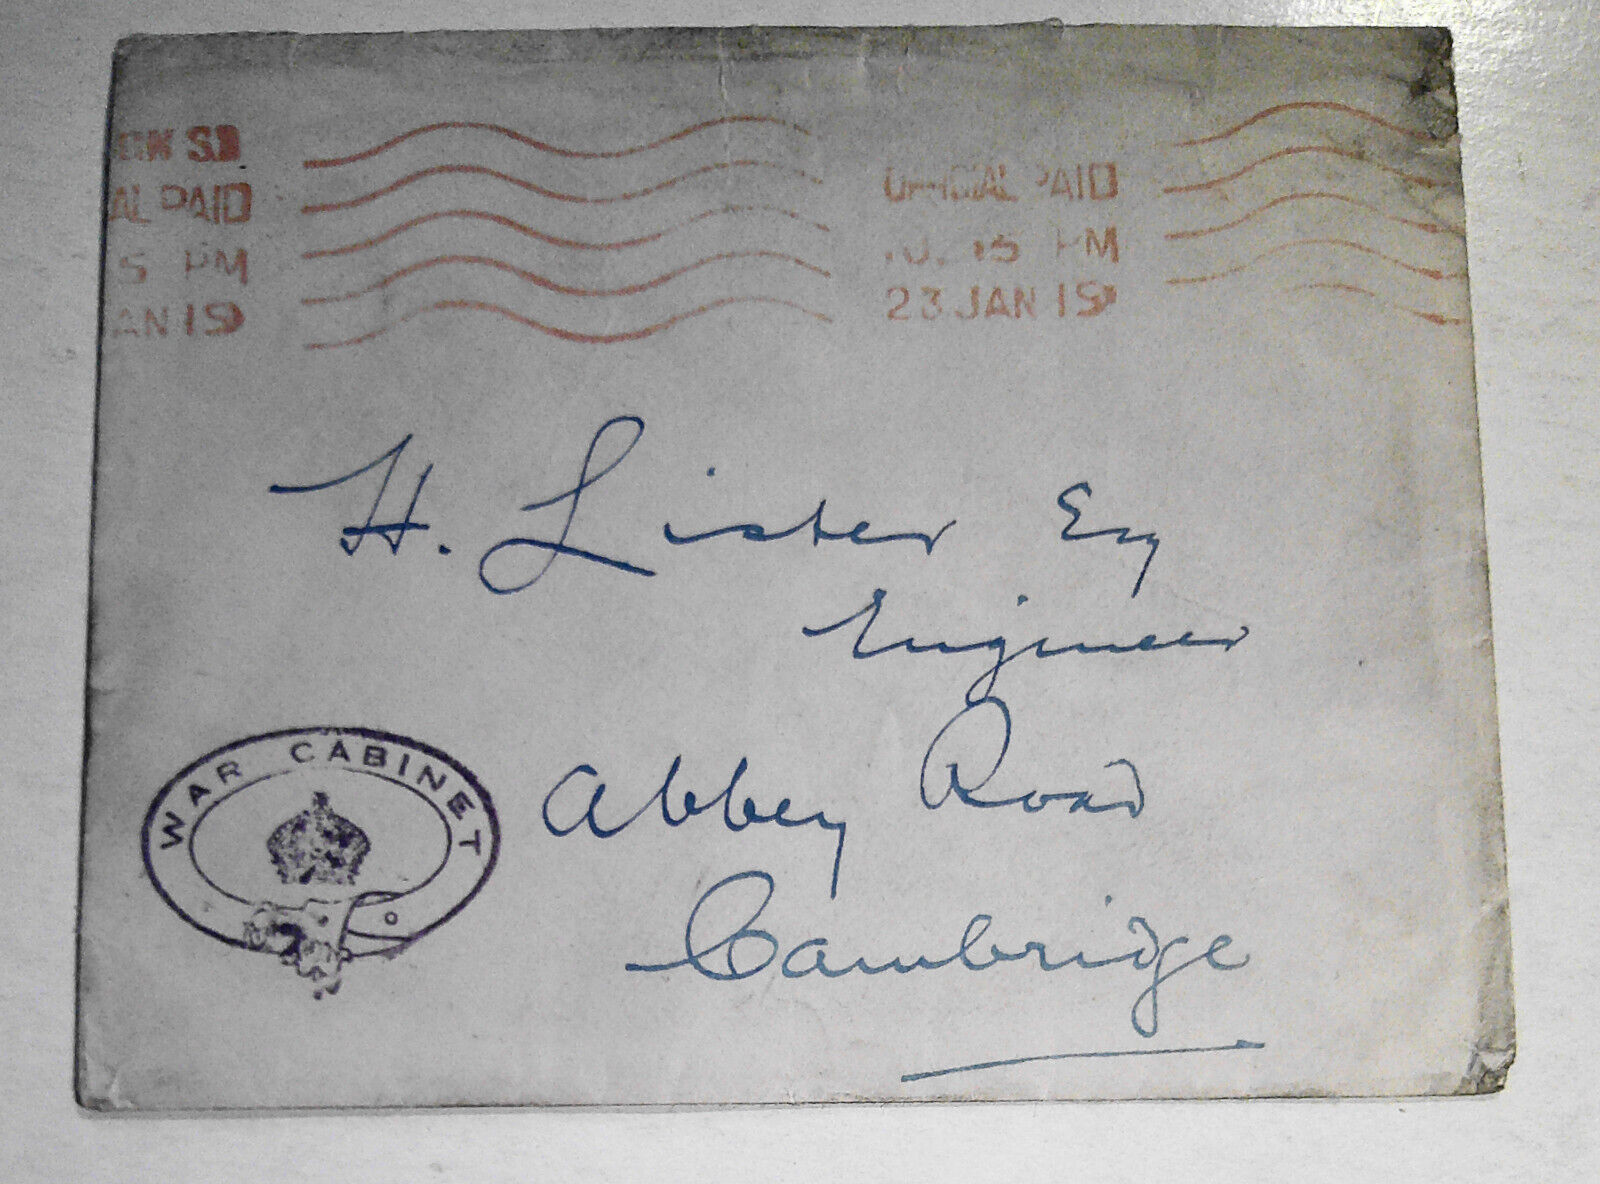 S.
AL PAID OFFICIAL PAID
5 PM 10. 15 PM
AN 19 23 JAN 19
H. Lister Esq
Engineer
Abbey Road
Cambridge
WAR CABINET